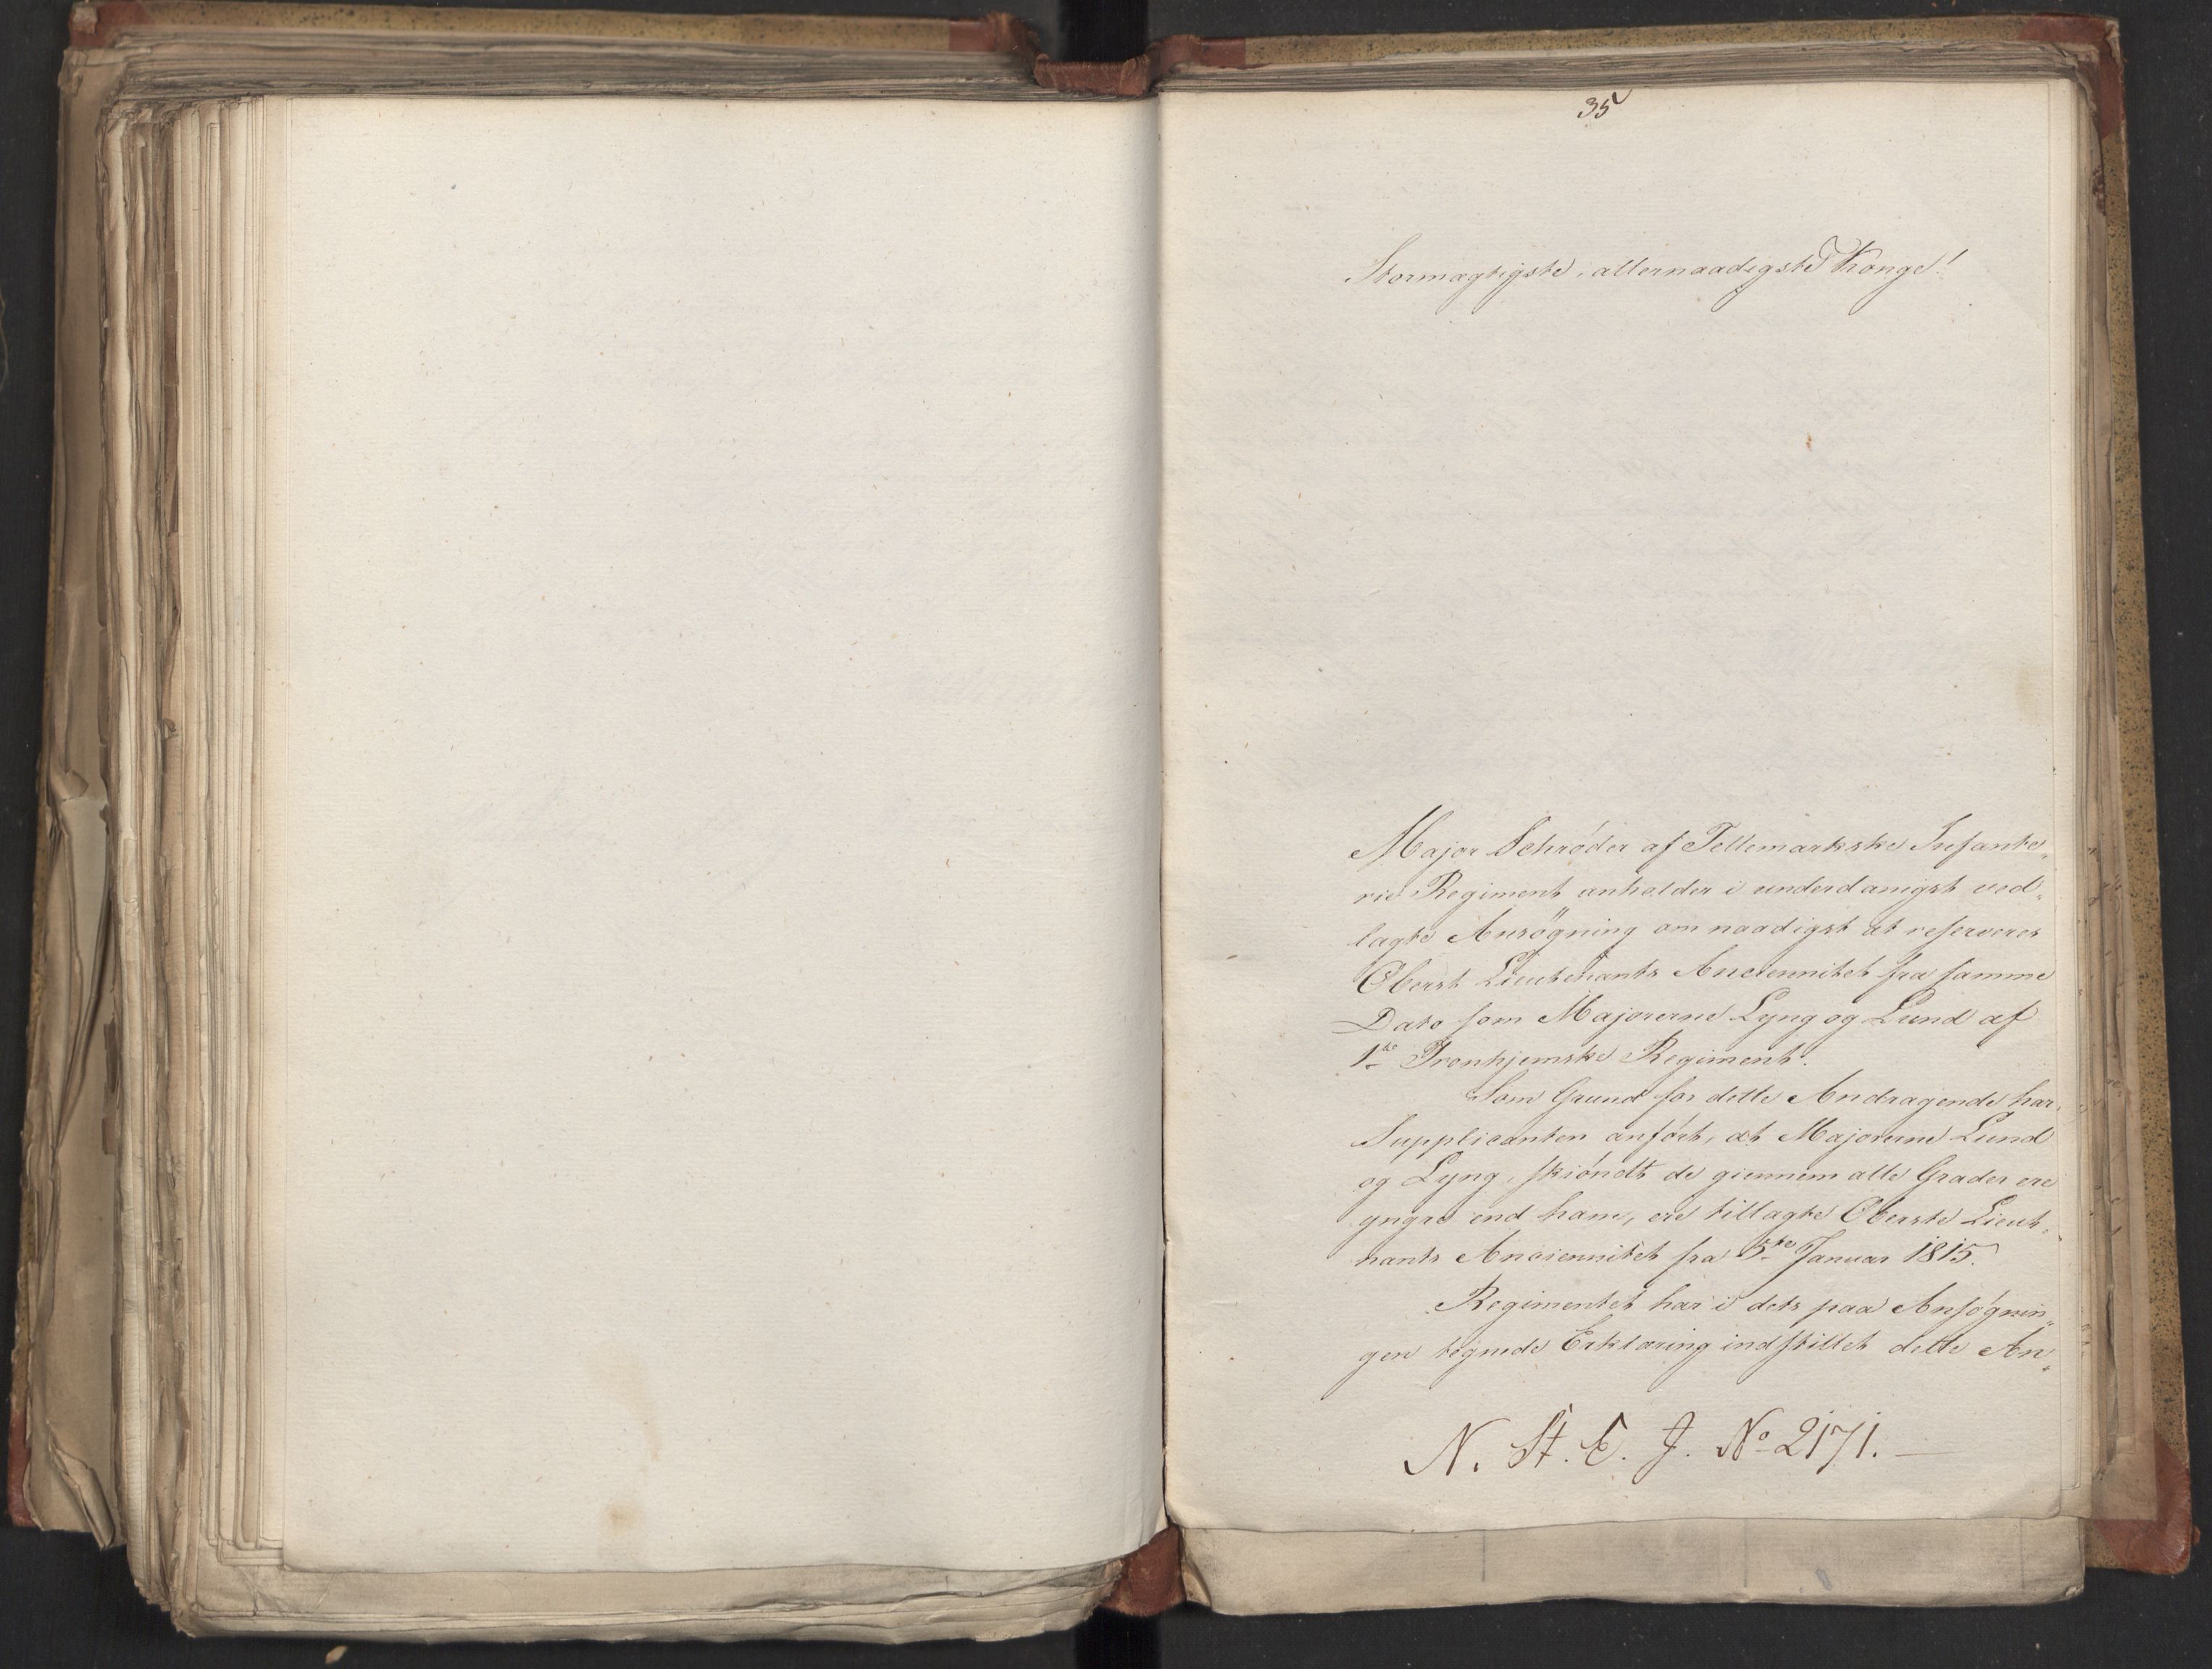 35
Stormægtigste, allernaadigste Konge!
Major Schrøder af Tellemarkske Infante„
rie Regiment anholder i underdanigst ved„
lagte Ansøgning om naadigst at reserveres
Oberst Lieutenants Anciennitet fra samme
Dato som Majorerne Lyng og Lund af
1ste Tronhjemske Regiment.
Som Grund for dette Andragende har
Supplicanten anført, at Majorerne Lund
og Lyng, skiøndt de giennem alle Grader ere
yngre end ham, ere tillagte Oberste Lieut„
nants Anciennitet fra 5te Januar 1815.
Regimentet har i dets paa Ansøgnin„
gen tegnede Erklæring indstillet dette An„
N. St. E. J. No 2171. —